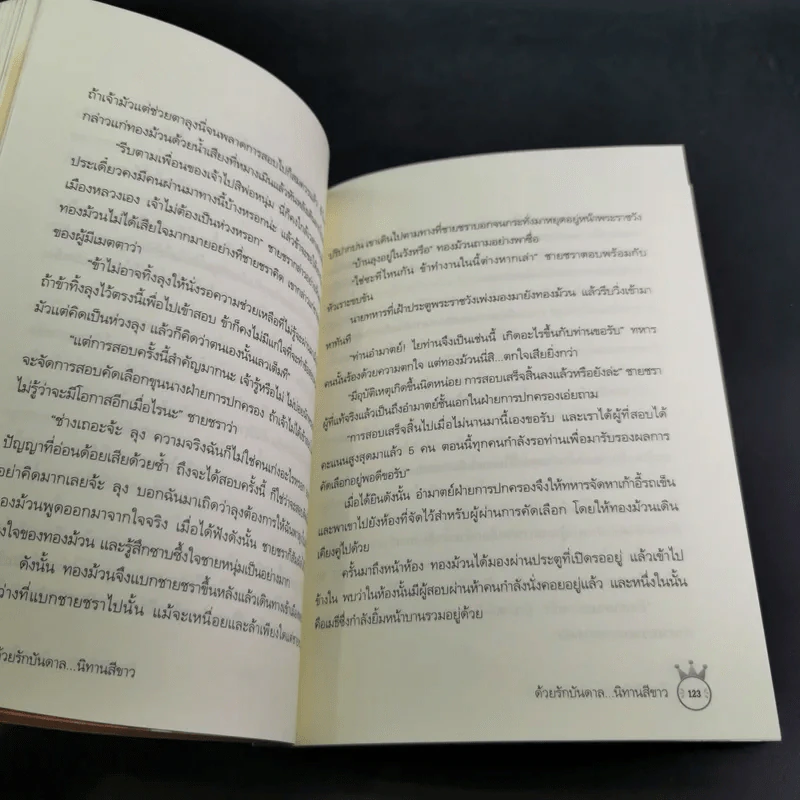 ถ้าเจ้ามัวแต่ช่วยตาลุงนี่จนพลาดการสอบไป
กล่าวแก่ทองม้วนด้วยน้ำเสียงที่หมางเมินแล้วหัน
"รีบตามเพื่อนของเจ้าไปสิพ่อหนุ่ม นี่ก็
ประเดี๋ยวคงมีคนผ่านมาทางนี้บ้างหรอกน่ะ แล้วข้าจะ
เมืองหลวงเอง เจ้าไม่ต้องเป็นห่วงหรอก" ชายชรา
ทองม้วนไม่ได้เสียใจมากมายอย่างที่ชายชราคิด เขา
ของผู้มีเมตตาว่า
"ข้าไม่อาจทิ้งลุงให้นั่งรอความช่วยเหลือที่ไม่รู้จะ
ถ้าข้าทิ้งลุงไว้ตรงนี้เพื่อไปเข้าสอบ ข้าก็คงไม่มีแก่ใจที่จะทำ
มัวแต่คิดเป็นห่วงลุง แล้วก็คิดว่าตนเองนั้นเลวเต็มที"
"แต่การสอบครั้งนี้สำคัญมากนะ เจ้ารู้หรือไม่
จะจัดการสอบคัดเลือกขุนนางฝ่ายการปกครอง ถ้าเจ้าไม่ได้
ไม่รู้ว่าจะมีโอกาสอีกเมื่อไรนะ" ชายชราว่า
"ช่างเถอะจ้ะ ลุง ความจริงฉันก็ไม่ใช่คนเก่งอะไร
ปัญญาที่อ่อนด้อยเสียด้วยซ้ำ ถึงจะได้สอบครั้งนี้ ก็ใช่ว่าจะ
อย่าคิดมากเลยจ้ะ ลุง บอกฉันมาเถิดว่าลุงต้องการให้ฉัน
ทองม้วนพูดออกมาจากใจจริง เมื่อได้ฟังดังนั้น ชายชราก็
ใจของทองม้วน และรู้สึกซาบซึ้งใจชายหนุ่มเป็นอย่างมาก
ดังนั้น ทองม้วนจึงแบกชายชราขึ้นหลังแล้วเดินทางเข้าเมือง
ว่างที่แบกชายชราไปนั้น แม้จะเหนื่อยและล้าเพียงใด
ด้วยรักบันดาล...นิทานสีขาว
ปริปากบ่น เขาเดินไปตามทางที่ชายชราบอกจนกระทั่งมาหยุดอยู่หน้าพระราชวัง
"บ้านลุงอยู่ในวังหรือ" ทองม้วนถามอย่างพาซื่อ
"ใช่ซะที่ไหนกัน ข้าทำงานในนี้ต่างหากเล่า" ชายชราตอบพร้อมกับ
หัวเราะขบขัน
นายทหารที่เฝ้าประตูพระราชวังเพ่งมองมายังทองม้วน แล้วรีบวิ่งเข้ามา
หาทันที
"ท่านอำมาตย์! ไยท่านจึงเป็นเช่นนี้ เกิดอะไรขึ้นกับท่านขอรับ" ทหาร
คนนั้นร้องด้วยความตกใจ แต่ทองม้วนนี่สิ...ตกใจเสียยิ่งกว่า
"มีอุบัติเหตุเกิดขึ้นนิดหน่อย การสอบเสร็จสิ้นลงแล้วหรือยังล่ะ" ชายชรา
ผู้ที่แท้จริงแล้วเป็นถึงอำมาตย์ชั้นเอกในฝ่ายการปกครองเอ่ยถาม
"การสอบเสร็จสิ้นไปเมื่อไม่นานมานี้เองขอรับ และเราได้ผู้ที่สอบได้
คะแนนสูงสุดมาแล้ว 5 คน ตอนนี้ทุกคนกำลังรอท่านเพื่อมารับรองผลการ
คัดเลือกอยู่พอดีขอรับ"
เมื่อได้ยินดังนั้น อำมาตย์ฝ่ายการปกครองจึงให้ทหารจัดหาเก้าอี้รถเข็น
และพาเขาไปยังห้องที่จัดไว้สำหรับผู้ผ่านการคัดเลือก โดยให้ทองม้วนเดิน
เคียงคู่ไปด้วย
ครั้นมาถึงหน้าห้อง ทองม้วนได้มองผ่านประตูที่เปิดรออยู่ แล้วเข้าไป
ข้างใน พบว่าในห้องนั้นมีผู้สอบผ่านห้าคนกำลังนั่งคอยอยู่แล้ว และหนึ่งในนั้น
คือเมธีซึ่งกำลังยิ้มหน้าบานรวมอยู่ด้วย
ด้วยรักบันดาล...นิทานสีขาว 123